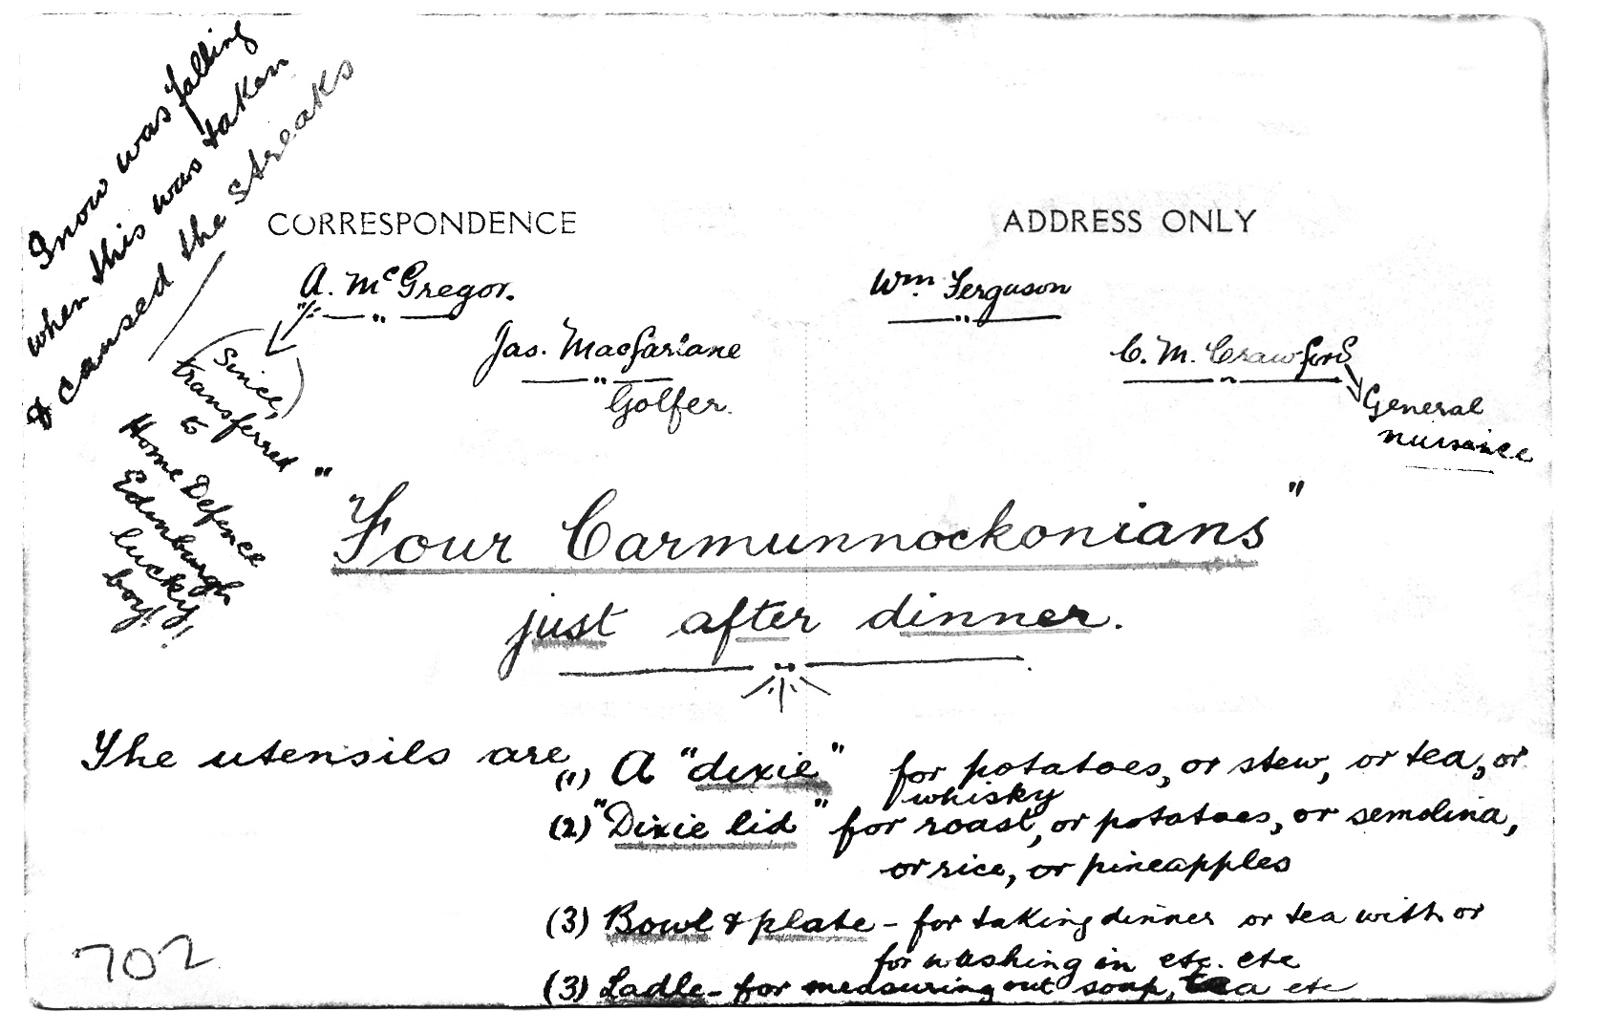 Snow was falling
when this was taken
& caused the streaks
CORRESPONDENCE
ADDRESS ONLY
A. McGregor.
Wm Ferguson
(Since,
transferred)
to
Home Defence
Edinburgh
lucky
boy!!
Jas. Macfarlane
Golfer.
C. M. Crawford
General
nuisance
"Four Carmunnockonians"
just after dinner.
The utensils are, (1) A "dixie" for potatoes, or stew, or tea, or
whisky
(2) "Dixie lid" for roast, or potatoes, or semolina,
or rice, or pineapples
(3) Bowl & plate - for taking dinner or tea with or
for washing in etc. etc
(3) Ladle - for measuring out soup, tea etc
702